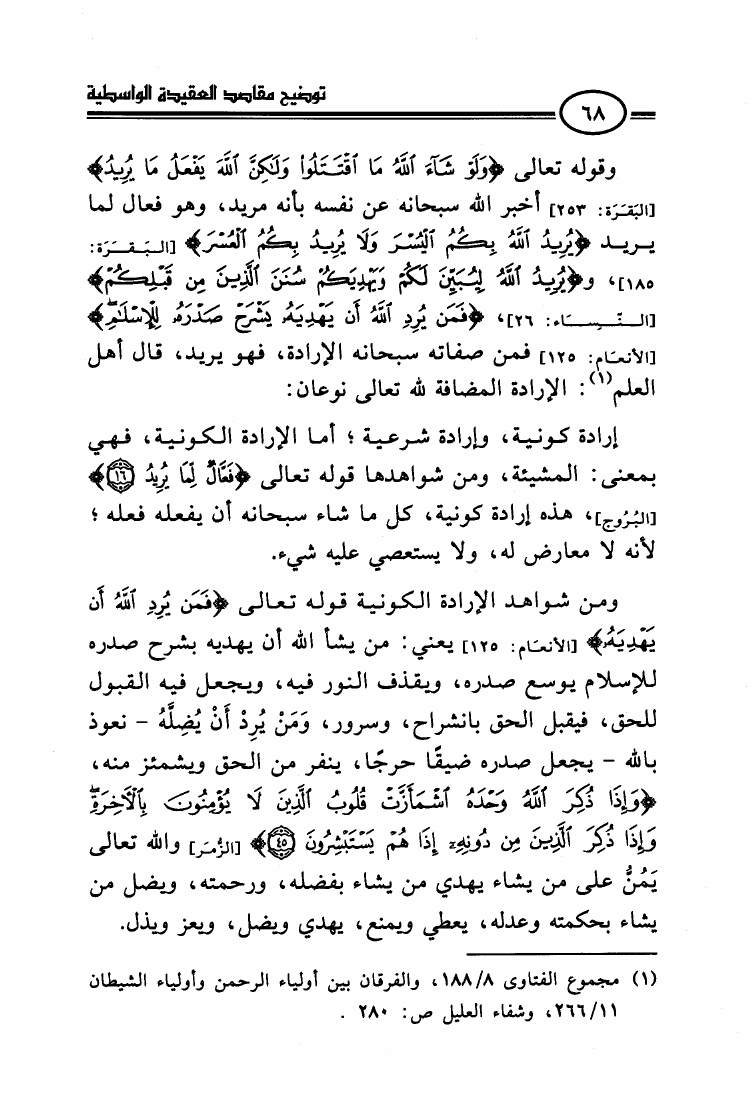 توضيح مقاصد العقيدة الواسطية
٦٨
وقوله تعالى ﴿وَلَوْ شَآءَ ٱللَّهُ مَا ٱقْتَتَلُوا۟ وَلَٰكِنَّ ٱللَّهَ يَفْعَلُ مَا يُرِيدُ﴾
[البَقَرَة: ٢٥٣] أخبر الله سبحانه عن نفسه بأنه مريد، وهو فعال لما
يريد ﴿يُرِيدُ ٱللَّهُ بِكُمُ ٱلْيُسْرَ وَلَا يُرِيدُ بِكُمُ ٱلْعُسْرَ﴾ [البَقَرَة:
١٨٥]، و﴿يُرِيدُ ٱللَّهُ لِيُبَيِّنَ لَكُمْ وَيَهْدِيَكُمْ سُنَنَ ٱلَّذِينَ مِن قَبْلِكُمْ﴾
[النِّسَاء: ٢٦]، ﴿فَمَن يُرِدِ ٱللَّهُ أَن يَهْدِيَهُۥ يَشْرَحْ صَدْرَهُۥ لِلْإِسْلَٰمِۖ﴾
[الأنعَام: ١٢٥] فمن صفاته سبحانه الإرادة، فهو يريد، قال أهل
العلم(١): الإرادة المضافة لله تعالى نوعان:
إرادة كونية، وإرادة شرعية؛ أما الإرادة الكونية، فهي
بمعنى: المشيئة، ومن شواهدها قوله تعالى ﴿فَعَّالٌ لِّمَا يُرِيدُ ۝١٦﴾
[البُرُوج]، هذه إرادة كونية، كل ما شاء سبحانه أن يفعله فعله؛
لأنه لا معارض له، ولا يستعصي عليه شيء.
ومن شواهد الإرادة الكونية قوله تعالى ﴿فَمَن يُرِدِ ٱللَّهُ أَن
يَهْدِيَهُۥ﴾ [الأنعَام: ١٢٥] يعني: من يشأ الله أن يهديه بشرح صدره
للإسلام يوسع صدره، ويقذف النور فيه، ويجعل فيه القبول
للحق، فيقبل الحق بانشراح، وسرور، وَمَنْ يُرِدْ أَنْ يُضِلَّهُ - نعوذ
بالله - يجعل صدره ضيقًا حرجًا، ينفر من الحق ويشمئز منه،
﴿وَإِذَا ذُكِرَ ٱللَّهُ وَحْدَهُ ٱشْمَأَزَّتْ قُلُوبُ ٱلَّذِينَ لَا يُؤْمِنُونَ بِٱلْآخِرَةِۖ
وَإِذَا ذُكِرَ ٱلَّذِينَ مِن دُونِهِۦٓ إِذَا هُمْ يَسْتَبْشِرُونَ ۝٤٥﴾ [الزُّمَر] والله تعالى
يَمُنُّ على من يشاء يهدي من يشاء بفضله، ورحمته، ويضل من
يشاء بحكمته وعدله، يعطي ويمنع، يهدي ويضل، ويعز ويذل.
(١) مجموع الفتاوى ١٨٨/٨، والفرقان بين أولياء الرحمن وأولياء الشيطان
٢٦٦/١١، وشفاء العليل ص: ٢٨٠ .